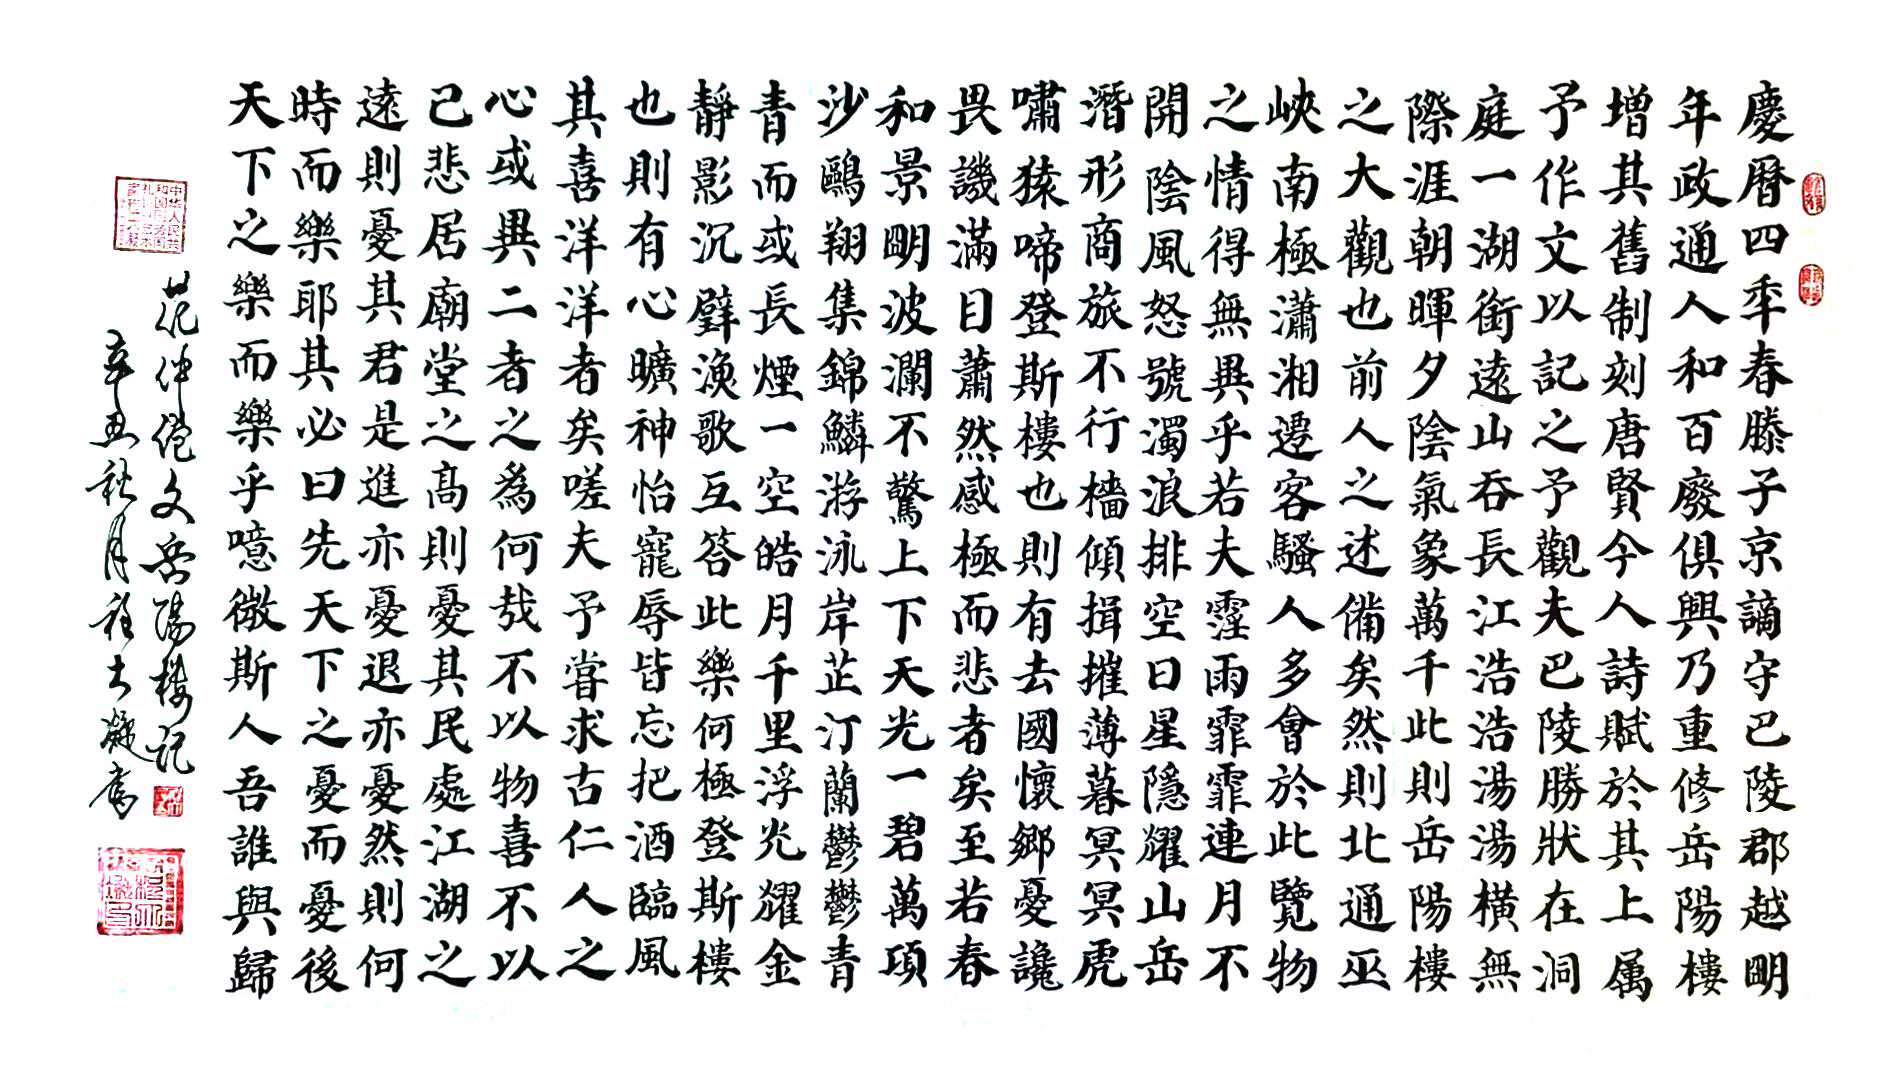 慶曆四秊春滕子京謫守巴陵郡越眀
年政通人和百廢俱興乃重修岳陽樓
增其舊制刻唐賢今人詩賦於其上属
予作文以記之予觀夫巴陵勝狀在洞
庭一湖銜遠山吞長江浩浩湯湯橫無
際涯朝暉夕陰氣象萬千此則岳陽樓
之大觀也前人之述備矣然則北通巫
峽南極瀟湘遷客騷人多會於此覽物
之情得無異乎若夫霪雨霏霏連月不
開陰風怒號濁浪排空日星隱耀山岳
潛形商旅不行檣傾揖摧薄暮冥冥虎
嘯猿啼登斯樓也則有去國懷鄉憂讒
畏譏滿目蕭然感極而悲者矣至若春
和景眀波瀾不驚上下天光一碧萬項
沙鷗翔集錦鱗游泳岸芷汀蘭鬱鬱青
青而或長煙一空皓月千里浮光耀金
靜影沉璧漁歌互答此樂何極登斯樓
也則有心曠神怡寵辱皆忘把酒臨風
其喜洋洋者矣嗟夫予嘗求古仁人之
心或異二者之為何哉不以物喜不以
己悲居廟堂之高則憂其民處江湖之
遠則憂其君是進亦憂退亦憂然則何
時而樂耶其必曰先天下之憂而憂後
天下之樂而樂乎噫微斯人吾誰與歸
范仲淹文岳陽樓記
辛丑秋月程大凝書